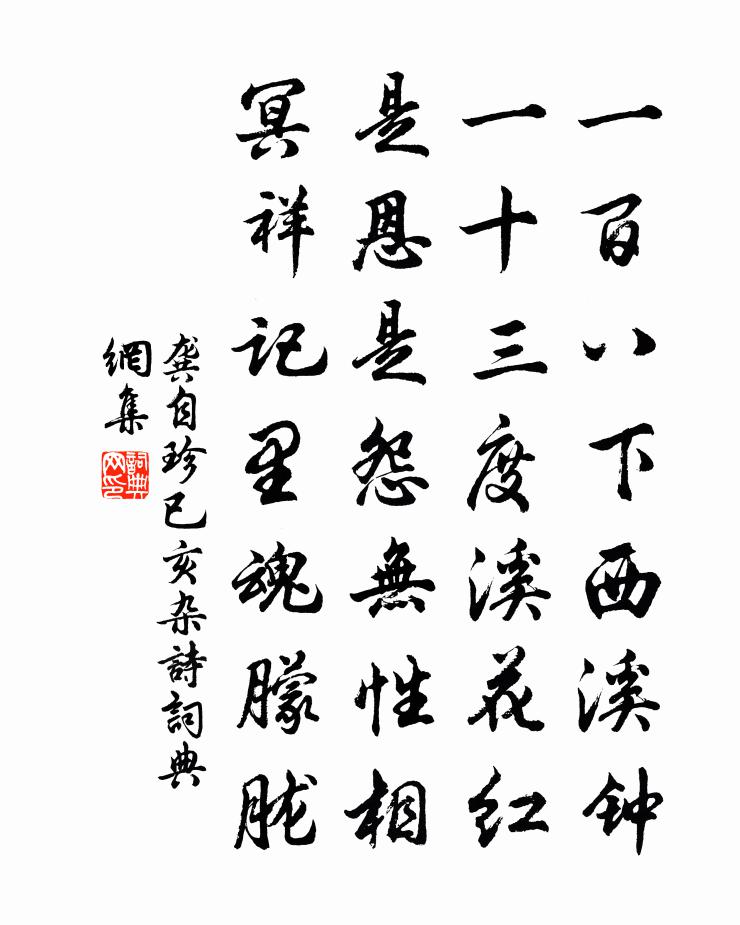 一百八下西溪钟
一十三度溪花红
是恩是怨無性相
冥祥記里魂朦朧
龚自珍己亥杂詩詞典
網集
詞典
网印